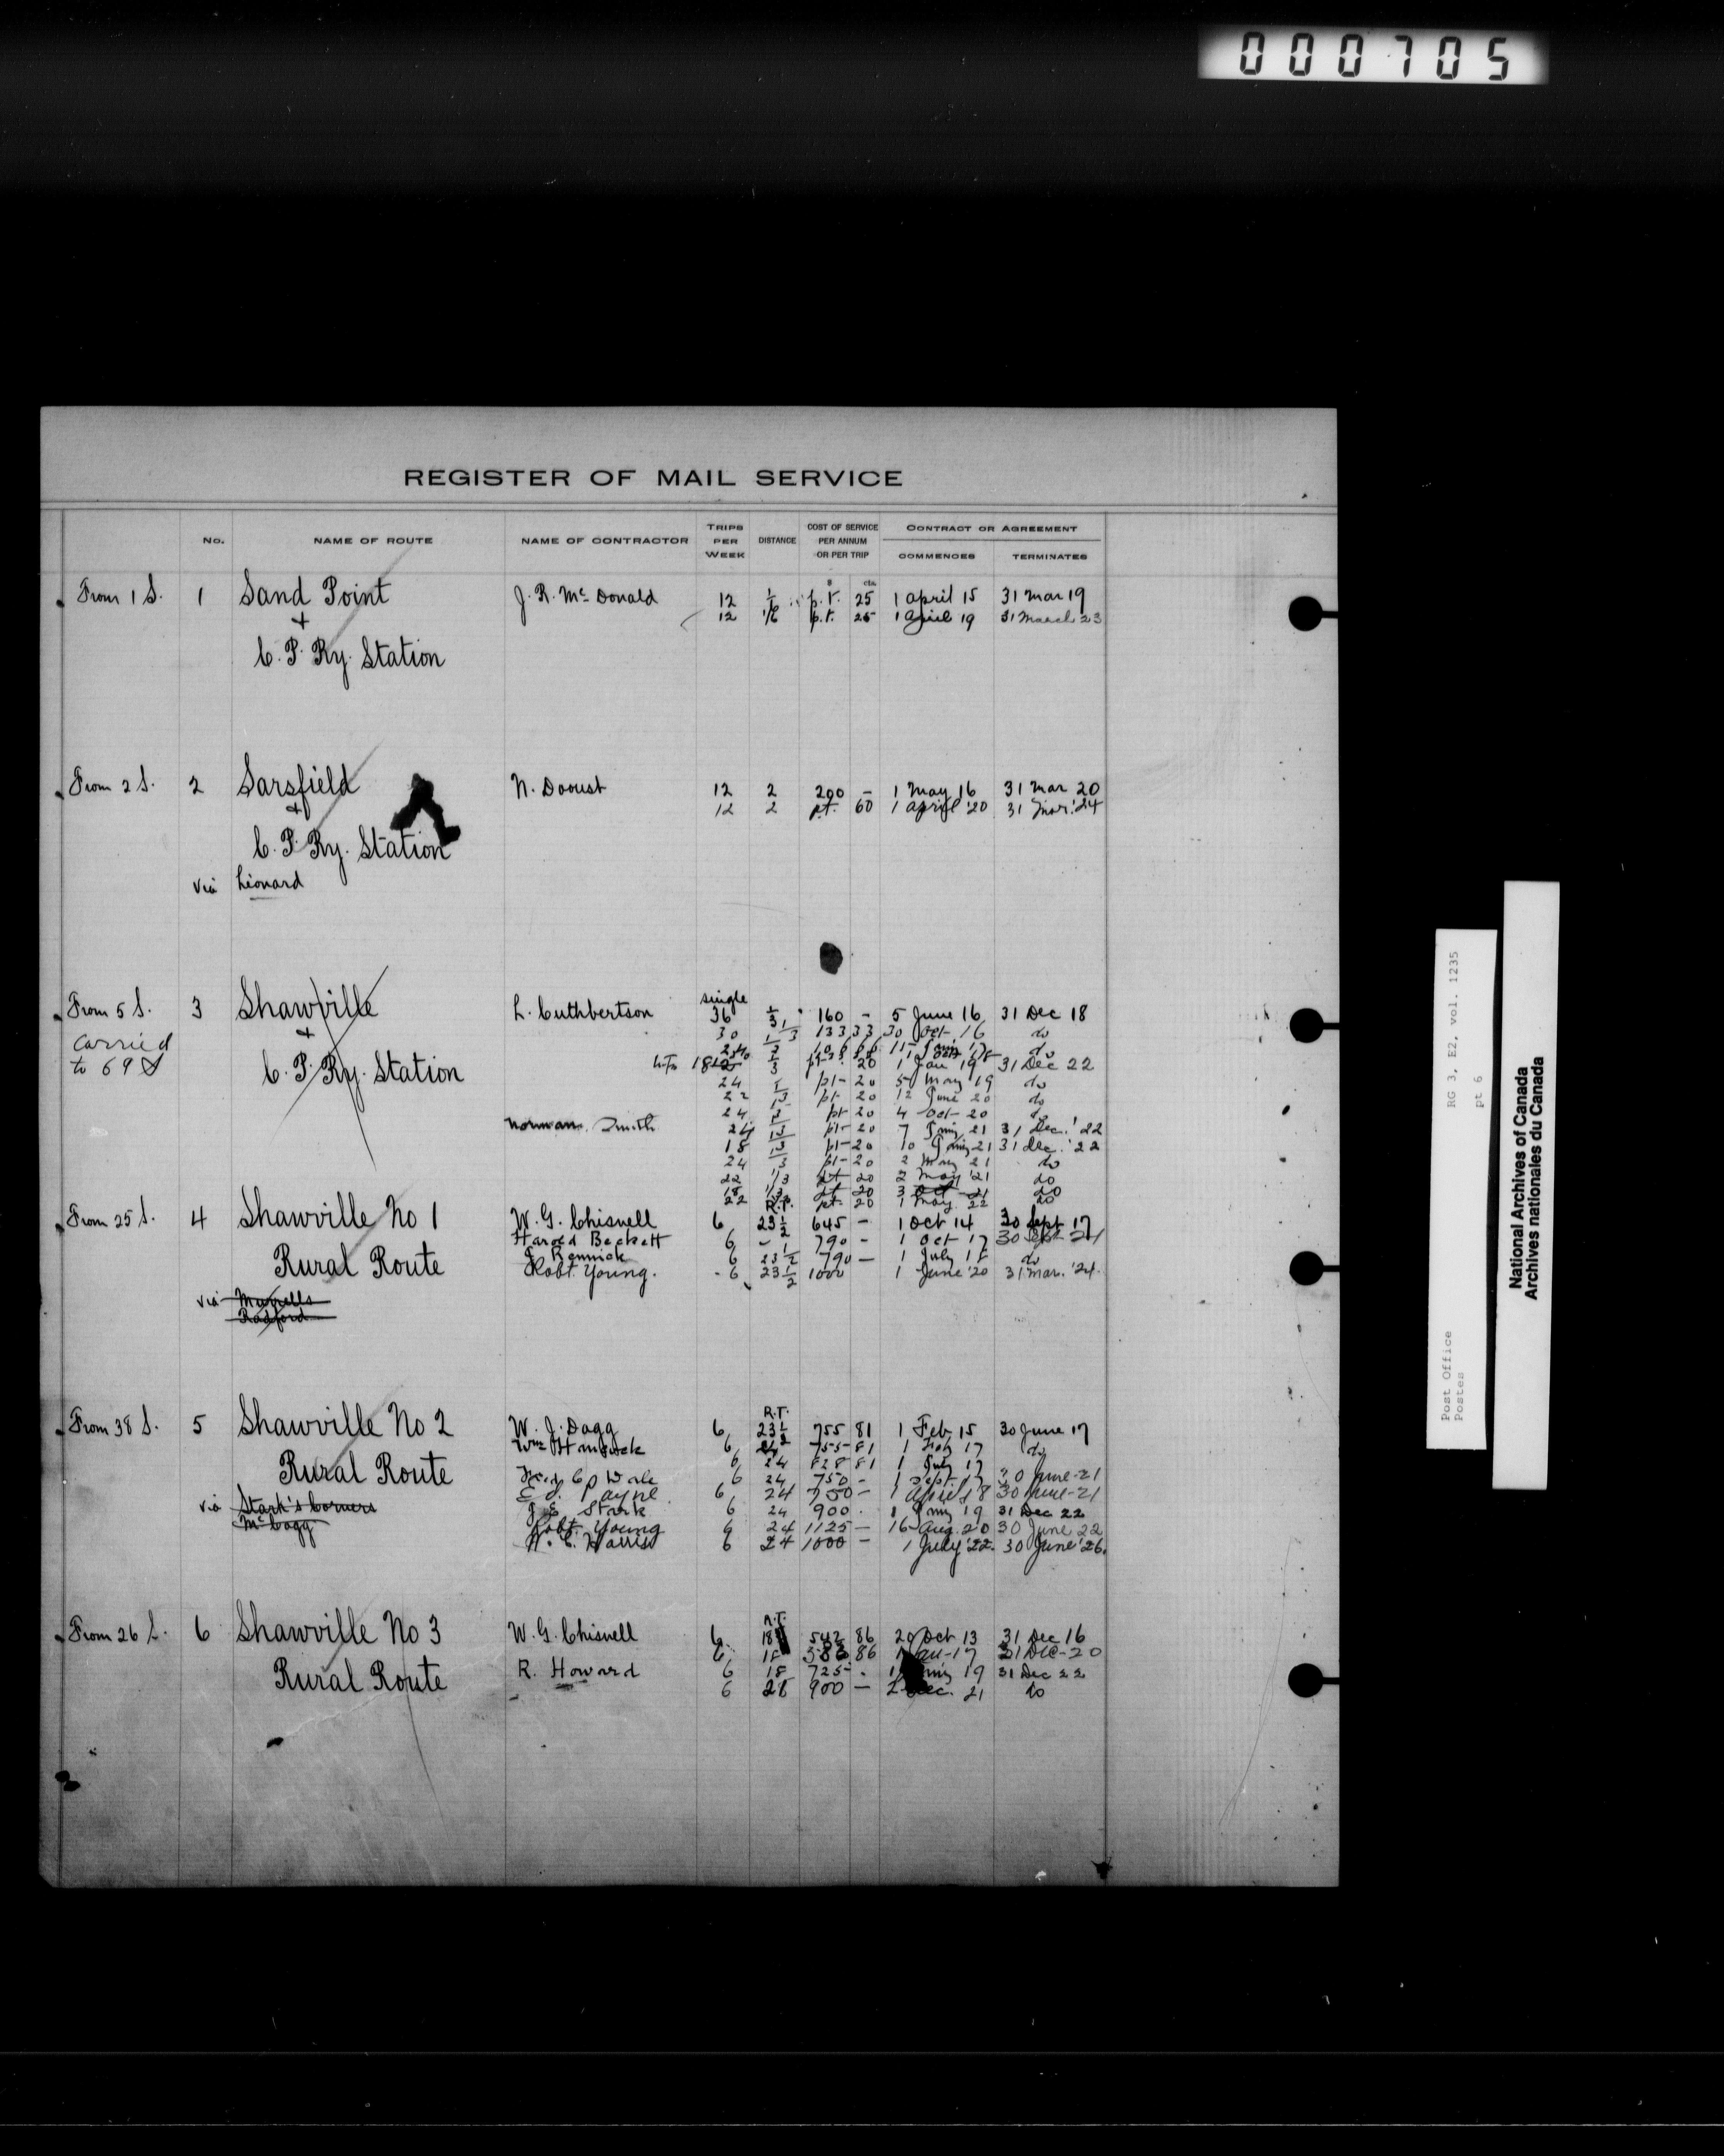 000705
REGISTER OF MAIL SERVICE
No. NAME OF ROUTE NAME OF CONTRACTOR TRIPS PER WEEK DISTANCE COST OF SERVICE PER ANNUM OR PER TRIP CONTRACT OR AGREEMENT COMMENCES TERMINATES
$ cts.
From 1 S. 1 Sand Point J. R. McDonald 12 1/6 p.t. 25 1 April 15 31 Mar 19
+ 12 1/6 p.t. 25 1 April 19 31 March 23
C. P. Ry. Station
From 2 S. 2 Sarsfield N. Daoust 12 2 200 – 1 May 16 31 Mar 20
+ 12 2 pt. 60 1 April '20 31 Mar. '24
C. P. Ry. Station
via Leonard
single
From 5 S. 3 Shawville L. Cuthbertson 36 1/3 160 – 5 June 16 31 Dec 18
+ 30 1/3 133 33 30 Oct 16 do
carried to 69 S
C. P. Ry. Station 1/3 pt. 20 1 Jan 19 31 Dec 22
24 pt- 20 5 May 19 do
22 1/3 pt 20 12 June 20 do
24 pt 20 4 Oct 20
Norman Smith 24 1/3 pt- 20 7 Jany 21 31 Dec. '22
18 1/3 pt- 20 10 Jany 21 31 Dec. '22
24 1/3 pt- 20 2 May 21 do
22 1/3 pt 20 2 May '21 do
18 1/3 pt 20 3 Oct 21 do
22 pt. 20 1 May 22 do
R.T.
From 25 S. 4 Shawville No 1 W. G. Chisnell 6 23 1/2 645 – 1 Oct 14 30 Sept 17
Harold Beckett 6 790 – 1 Oct 17 30 Sept 21
Rural Route J. Rennick 6 23 1/2 790 – 1 July 18 do
Robt. Young. 6 23 1/2 1000 1 June '20 31 Mar. '24.
via Murrells
Radford
R.T.
From 38 S. 5 Shawville No 2 W. J. Dagg 6 23 1/2 755 81 1 Feb 15 30 June 17
6 755 81 1 Feb 17 do
Rural Route 6 24 828 81 1 July 17
6 24 750 – 1 Sept 17 30 June-21
E. J. Payne 6 24 750 – 1 April 18 30 June-21
via Stark's Corners J. E. Stark 6 24 900 . 1 Jany 19 31 Dec 22
Robt. Young 6 24 1125 – 16 Aug. 20 30 June 22
W. C. Harris 6 24 1000 – 1 July '22. 30 June '26.
R.T.
From 26 S. 6 Shawville No 3 W. G. Chisnell 6 18 542 86 20 Oct 13 31 Dec 16
6 18 86 1 Jan-17 31 Dec-20
Rural Route R. Howard 6 18 725 . 1 Jany 19 31 Dec 22
6 28 900 – 2 Dec. 21 do
Post Office RG 3, E2, vol. 1235
Postes pt 6
National Archives of Canada
Archives nationales du Canada